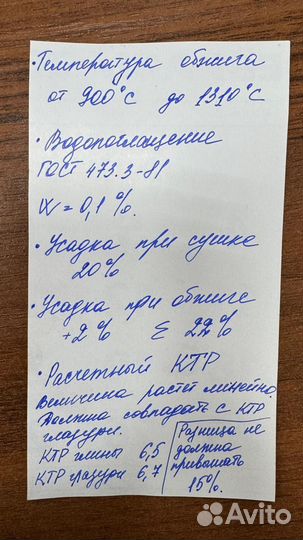 · Температура обжига
от 900°С до 1310°С
· Водопоглащение
ГОСТ 473.3-81
W = 0,1 %.
· Усадка при сушке
20%
· Усадка при обжиге
+2 % Σ 22%
· Расчетный КТР
Величина растет линейно.
Должна совпадать с КТР
глазури.
КТР глины 6,5
КТР глазури 6,7
Разница не
должна
привышать
15%.
Avito